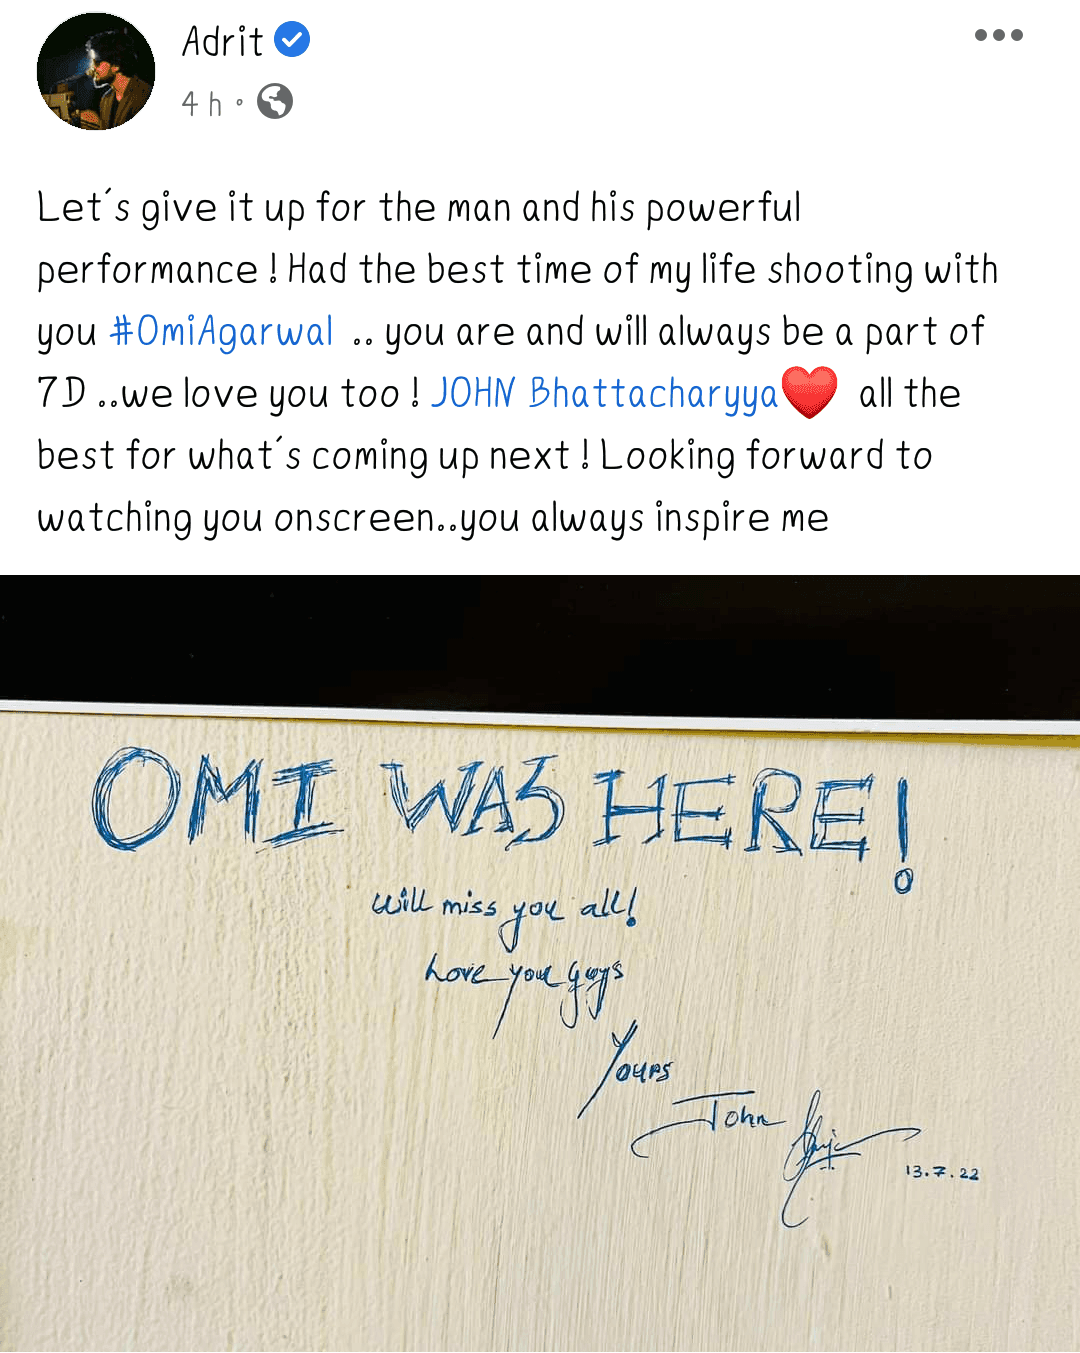 Adrit
4 h
Let's give it up for the man and his powerful
performance ! Had the best time of my life shooting with
you #OmiAgarwal .. you are and will always be a part of
7D ..we love you too ! JOHN Bhattacharyya❤️ all the
best for what's coming up next ! Looking forward to
watching you onscreen..you always inspire me
OMI WAS HERE!
will miss you all!
Love you guys
Yours
John
13.7.22